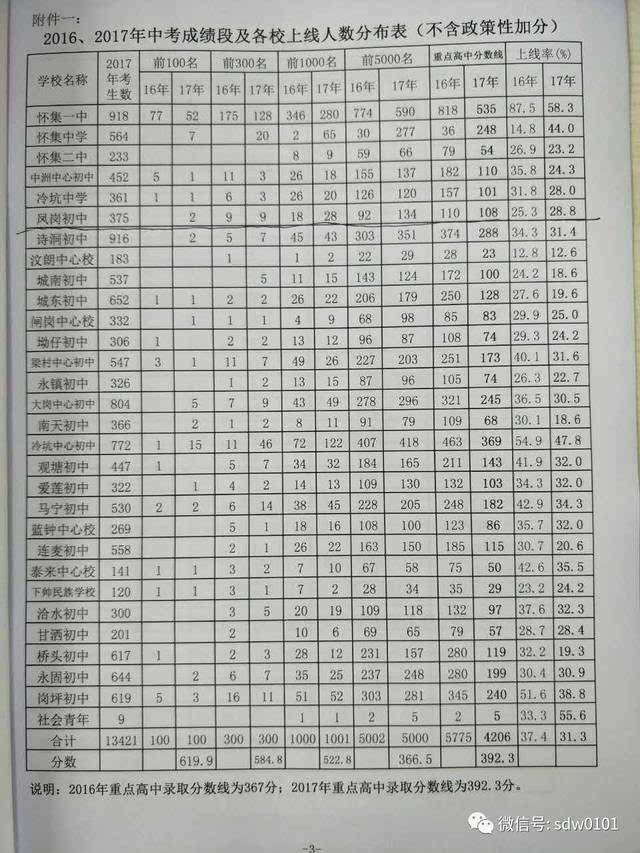 附件一：
2016、2017年中考成绩段及各校上线人数分布表（不含政策性加分）
学校名称 2017年考生数 前100名 前300名 前1000名 前5000名 重点高中分数线 上线率(%)
16年 17年 16年 17年 16年 17年 16年 17年 16年 17年 16年 17年
怀集一中 918 77 52 175 128 346 280 774 590 818 535 87.5 58.3
怀集中学 564 7 20 2 65 30 277 36 248 14.8 44.0
怀集二中 233 8 9 59 66 79 54 26.9 23.2
中洲中心初中 452 5 1 11 3 26 18 155 137 182 110 35.8 24.3
冷坑中学 361 1 1 6 3 26 20 126 120 157 101 31.8 28.0
凤岗初中 375 2 9 9 18 28 92 134 110 108 25.3 28.8
诗洞初中 916 2 5 7 45 43 303 351 374 288 34.3 31.4
汶朗中心校 183 1 1 2 22 29 28 23 12.8 12.6
城南初中 537 5 11 15 143 124 172 100 24.2 18.6
城东初中 652 1 1 2 2 26 22 206 179 250 128 27.6 19.6
闸岗中心校 332 1 1 1 4 9 68 98 85 83 29.9 25.0
坳仔初中 306 1 2 2 13 12 96 87 108 74 29.3 24.2
梁村中心初中 547 3 1 11 7 49 26 227 203 251 173 40.1 31.6
永镇初中 326 1 2 13 15 87 96 105 74 26.3 22.7
大岗中心初中 804 5 7 9 43 49 278 296 321 245 36.5 30.5
南天初中 366 2 1 2 8 11 91 79 109 68 30.1 18.6
冷坑中心初中 772 1 15 11 46 72 122 407 418 463 369 54.9 47.8
观塘初中 447 1 5 7 34 32 184 165 211 143 41.9 32.0
爱莲初中 322 1 4 2 14 13 109 130 132 103 34.3 32.0
马宁初中 530 2 2 6 14 38 45 228 205 248 182 42.9 34.3
蓝钟中心校 269 5 1 18 16 108 100 123 86 35.7 32.0
连麦初中 558 2 1 26 22 163 150 185 115 30.7 20.6
泰来中心校 141 1 1 3 2 7 10 67 58 75 50 42.6 35.5
下帅民族学校 120 1 1 3 1 7 2 28 34 35 29 23.2 24.2
洽水初中 300 3 5 20 19 109 118 132 97 37.6 32.3
甘洒初中 201 2 10 6 69 65 79 57 28.7 28.4
桥头初中 617 1 2 3 28 12 231 157 280 119 32.2 19.3
永固初中 644 2 6 7 35 25 237 248 280 199 30.4 30.9
岗坪初中 619 5 3 16 11 51 52 303 281 345 240 51.6 38.8
社会青年 9 1 1 2 5 2 5 33.3 55.6
合计 13421 100 100 300 300 1000 1001 5002 5000 5775 4206 37.4 31.3
分数 619.9 584.8 522.8 366.5 392.3
说明：2016年重点高中录取分数线为367分；2017年重点高中录取分数线为392.3分。
微信号: sdw0101
-3-